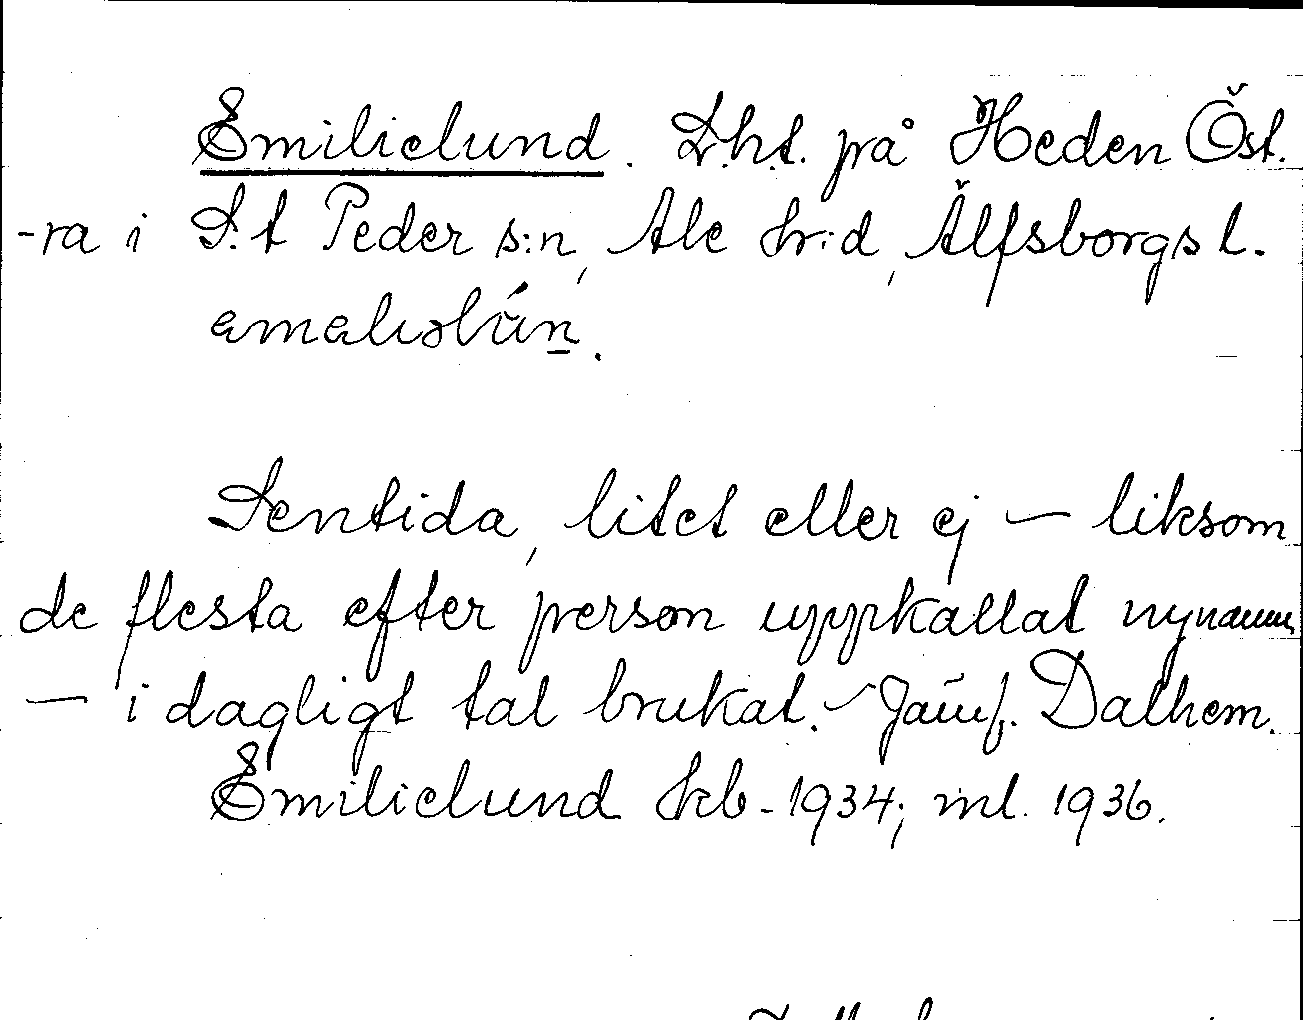 Emilielund. L.h.t. på Heden Öst.
-ra i S:t Peder s:n, Ale hr:d, Älfsborgs l.
Sentida, litet eller ej — liksom
de flesta efter person uppkallat nynamn
— i dagligt tal brukat. ~ Jämf. Dalhem.
Emilielund kb. 1934; ml. 1936.